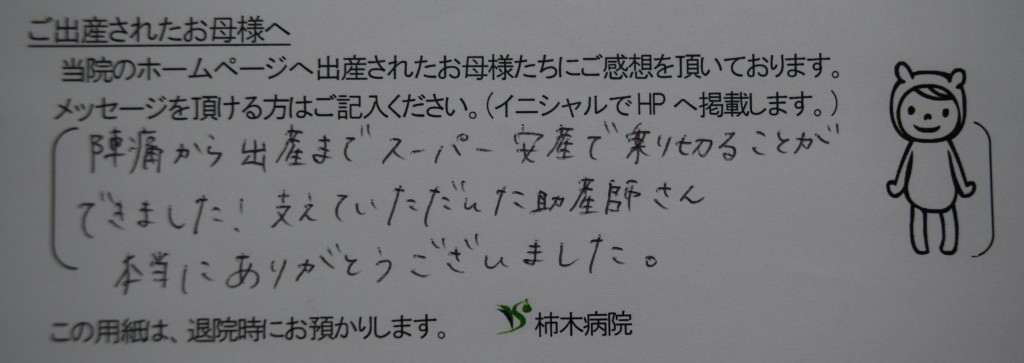 ご出産されたお母様へ
当院のホームページへ出産されたお母様たちにご感想を頂いております。
メッセージを頂ける方はご記入ください。(イニシャルでHPへ掲載します。)
陣痛から出産までスーパー安産で乗り切ることが
できました!支えていただいた助産師さん
本当にありがとうございました。
この用紙は、退院時にお預かりします。
柿木病院